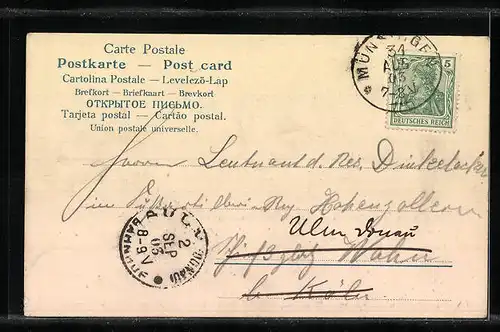 Carte Postale
Postkarte — Post card
Cartolina Postale — Levelező-Lap
Brefkort — Briefkaart — Brevkort
ОТКРЫТОЕ ПИСЬМО.
Tarjeta postal — Cartão postal.
Union postale universelle.
31
AUG
03
7-8V
5
DEUTSCHES REICH
Herrn Leutnant d. Res. Dinkelacker
im
Hohenzollern
Ulm Donau
Wahn
b. Köln
ULM
2
SEP
03
8-9V
(DONAU)
BAHNHOF